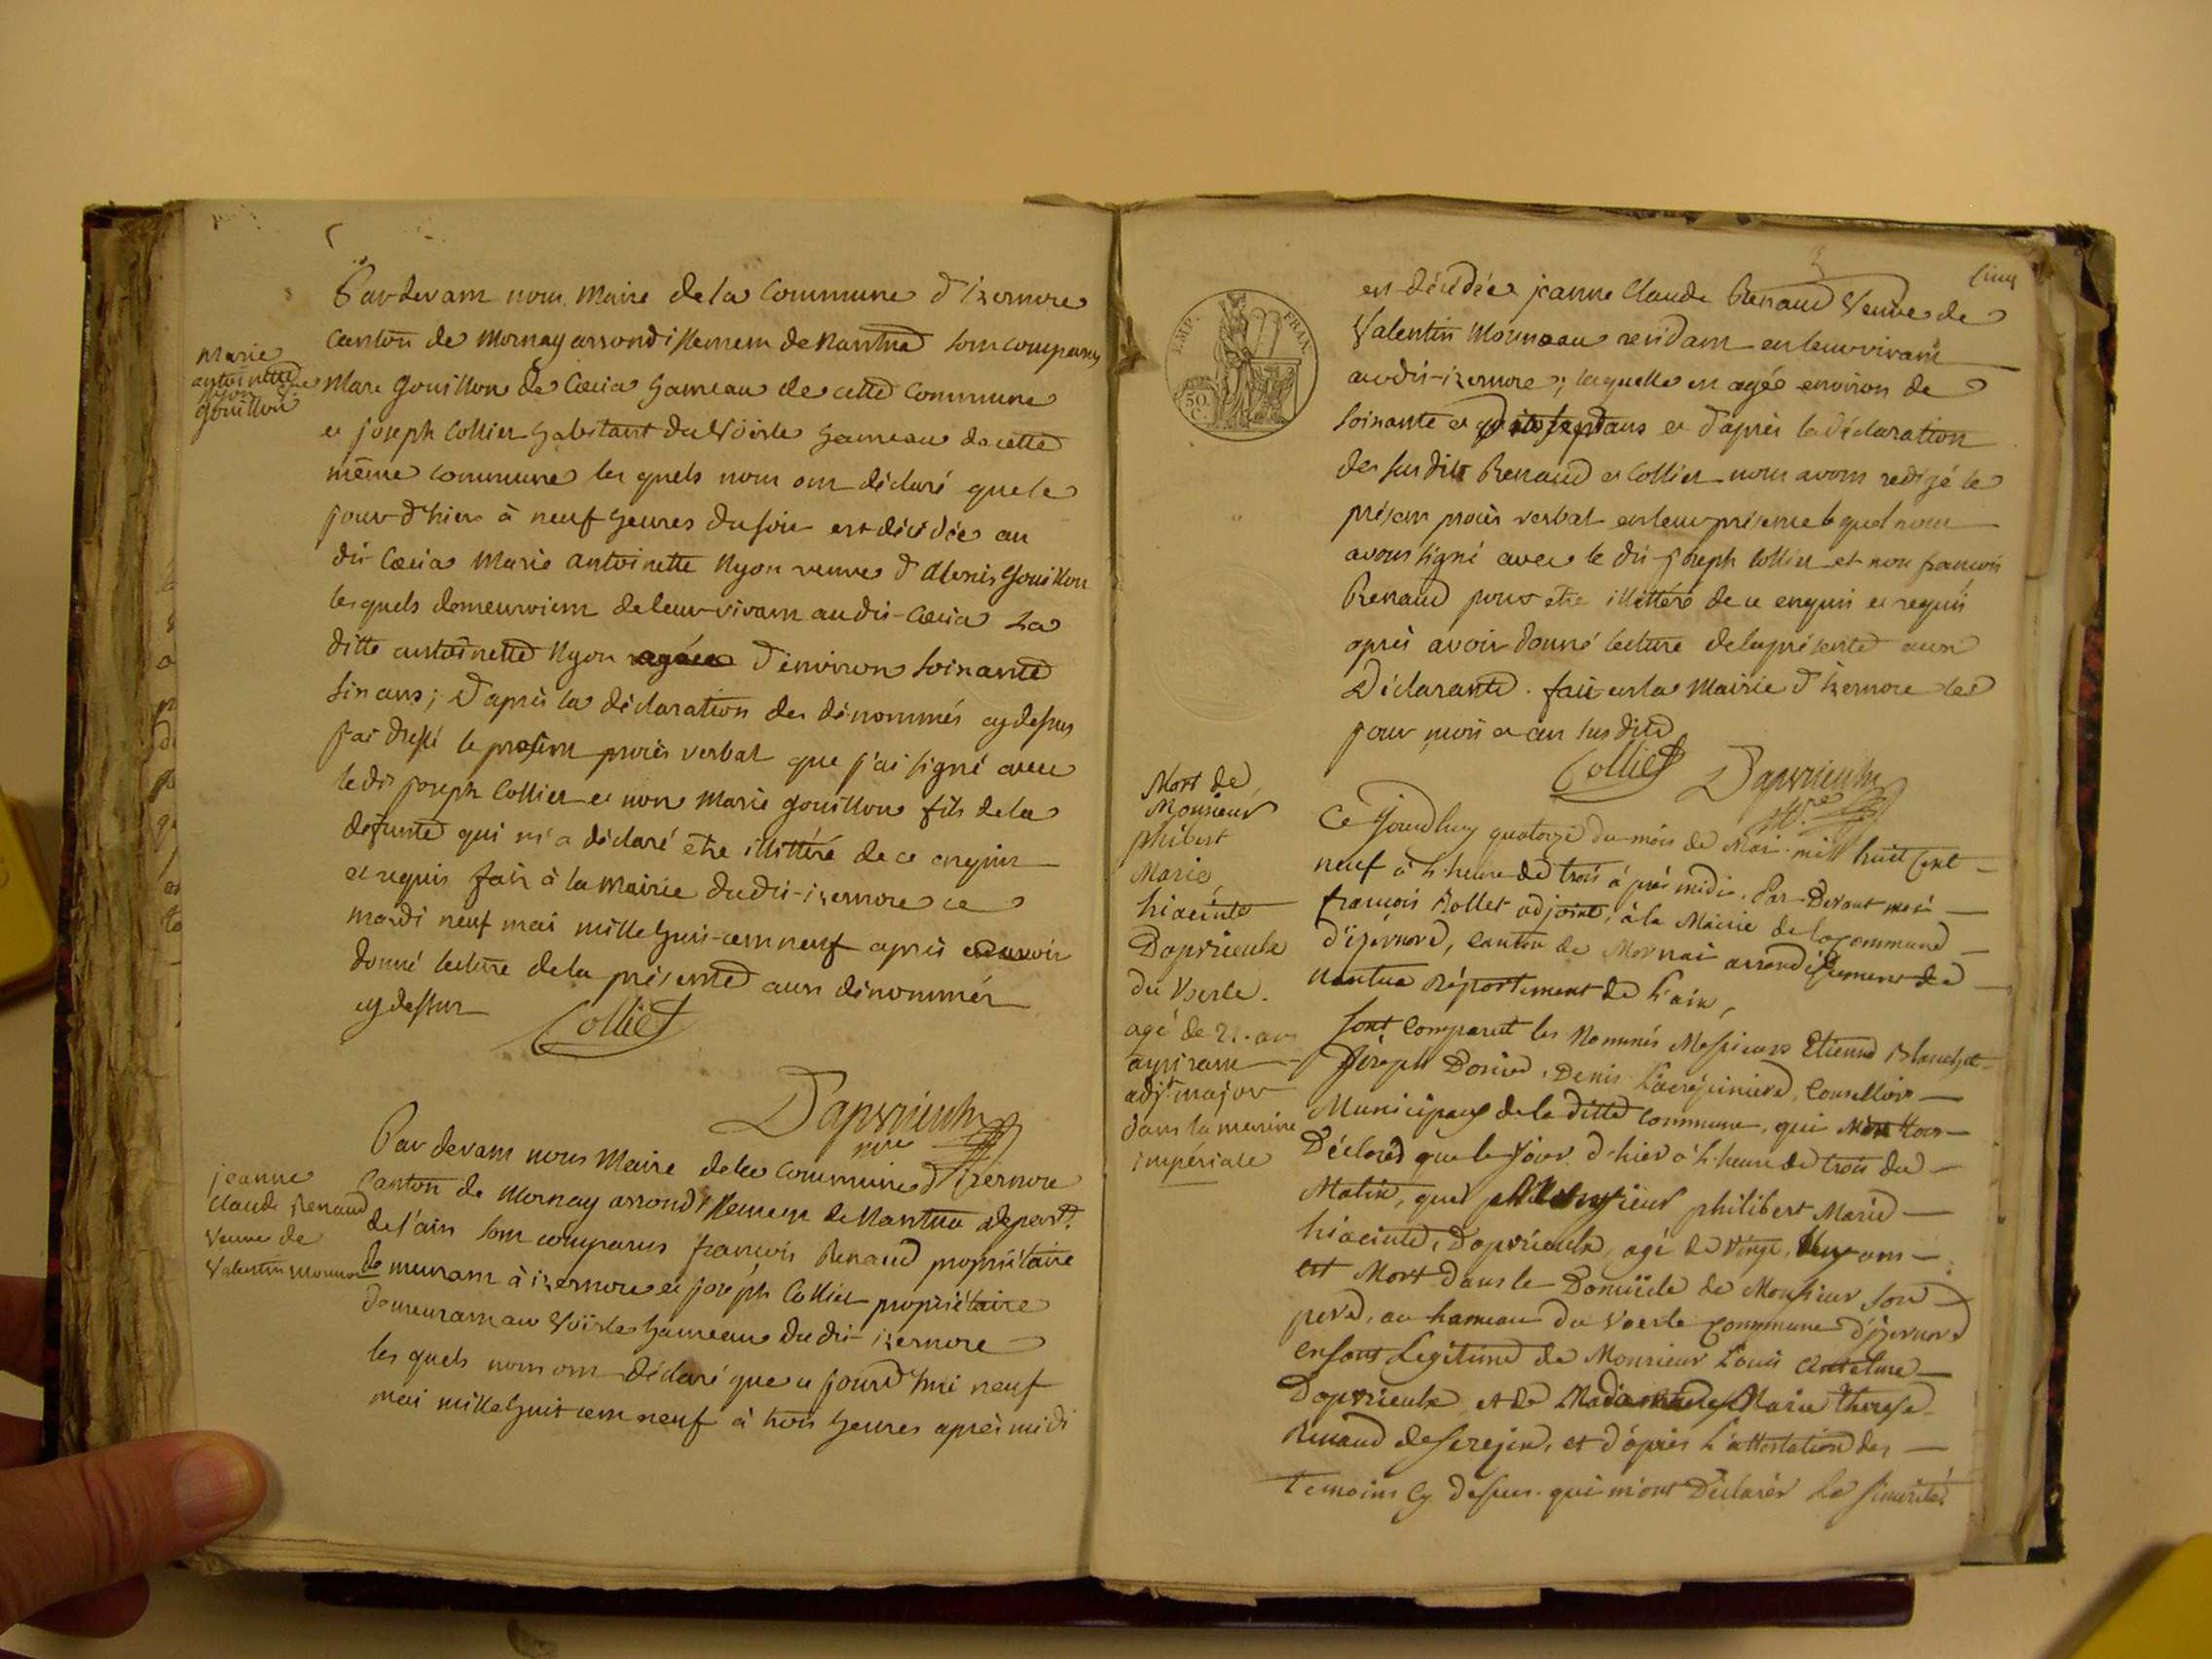 Pardevant nous Maire de la Commune d'izernore
Canton de Mornay arrondissement de Nantua sont comparus
marie
antoinette
Nyon
gouillon
Marc gouillon de Ceciat hameau de cette Commune
et joseph Collier habitant du Voërle hameau de cette
même commune les quels nous ont déclaré que le
jour d'hier à neuf heures du soir est décédée au
dit Marie antoinette Nyon veuve d'alexis gouillon
les quels demeuroient de leur vivant audit La
ditte antoinette Nyon agée d'environ soixante
six ans; D'après la déclaration des dénommés cy dessus
j'ai dressé le present procès verbal que j'ai signé avec
le dit joseph Collier et non Marie gouillon fils de la
defunte qui m'a déclaré etre illittéré de ce enquis
et requis fait à la Mairie dudit izernore ce
mardi neuf mai mille huit cent neuf après avoir
donné lecture de la présente aux dénommés
cy dessus Collier
Dapvrieulx
mre
jeanne
Claude Renaud
veuve de
Valentin Mournau
Par devant nous Maire de la Commune d'izernore
Canton de Mornay arrondissement de Nantua depart.t
de l'ain sont comparus françois Renaud propriétaire
demeurant à izernore et joseph Collier propriétaire
demeurant au Voërle hameau dudit izernore
les quels nous ont déclaré que ce jourd'hui neuf
mai mille huit cent neuf à trois heures après midi
EMP. FRAN.
50.
C.
cinq
est décédée jeanne Claude Renaud Veuve de
Valentin Mourneau residant en leur vivant
audit izernore; laquelle est agée environ de
soixante et ans et d'après la déclaration
des susdits Renaud et Collier nous avons redigé le
présent procès verbal en leur présence lequel nous
avons signé avec le dit joseph Collier et non françois
Renaud pour etre illittéré de ce enquis et requis
après avoir donné lecture de la présente aux
Déclarants. fait en la Mairie d'izernore les
jour mois et an susdits
Collier Dapvrieulx
mre
Mort de
Monsieur
phibert
Marie
hiacinte
Dapvrieulx
du Voerle.
agé de 21. ans
aspirant
adjt major
dans la marine
impériale
Ce Jourdhuy quatorze du mois de Mai mill huit Cent
neuf à L'heure de trois à près midi. Par Devant moi
françois Rollet adjoint, à la Mairie de la Commune
d'izernore, canton de Mornai arrondissement de
nantua Département de L'ain,
sont Comparut les Nommés Messieurs Etienne Blanchet
Joseph Denis Conseillers
Municipaux de la ditte Commune, qui Mon
Déclarés que le Jour d'hier à L'heure de trois du
Matin, que Monsieur philibert Marie
hiacinte, Dapvrieulx, agé de vingt, un ans
est Mort dans le Domicile de Monsieur son
pere, au hameau du Voerle Commune d'izernore
enfant Legitime de Monsieur Louis Anthelme
Dapvrieulx et de Madame Marie Therese
Renaud de et d'après L'attestation des
Temoins Cy dessus. qui m'ont Déclarés La sincerité